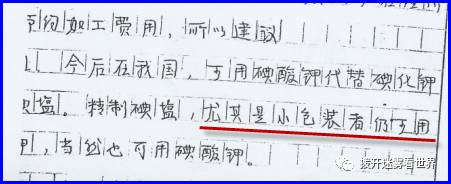 约加工费用，所以建议
今后在我国，可用碘酸钾代替碘化钾
盐。精制碘盐，尤其是小包装者仍可用
，当然也可用碘酸钾。
拨开迷雾看世界